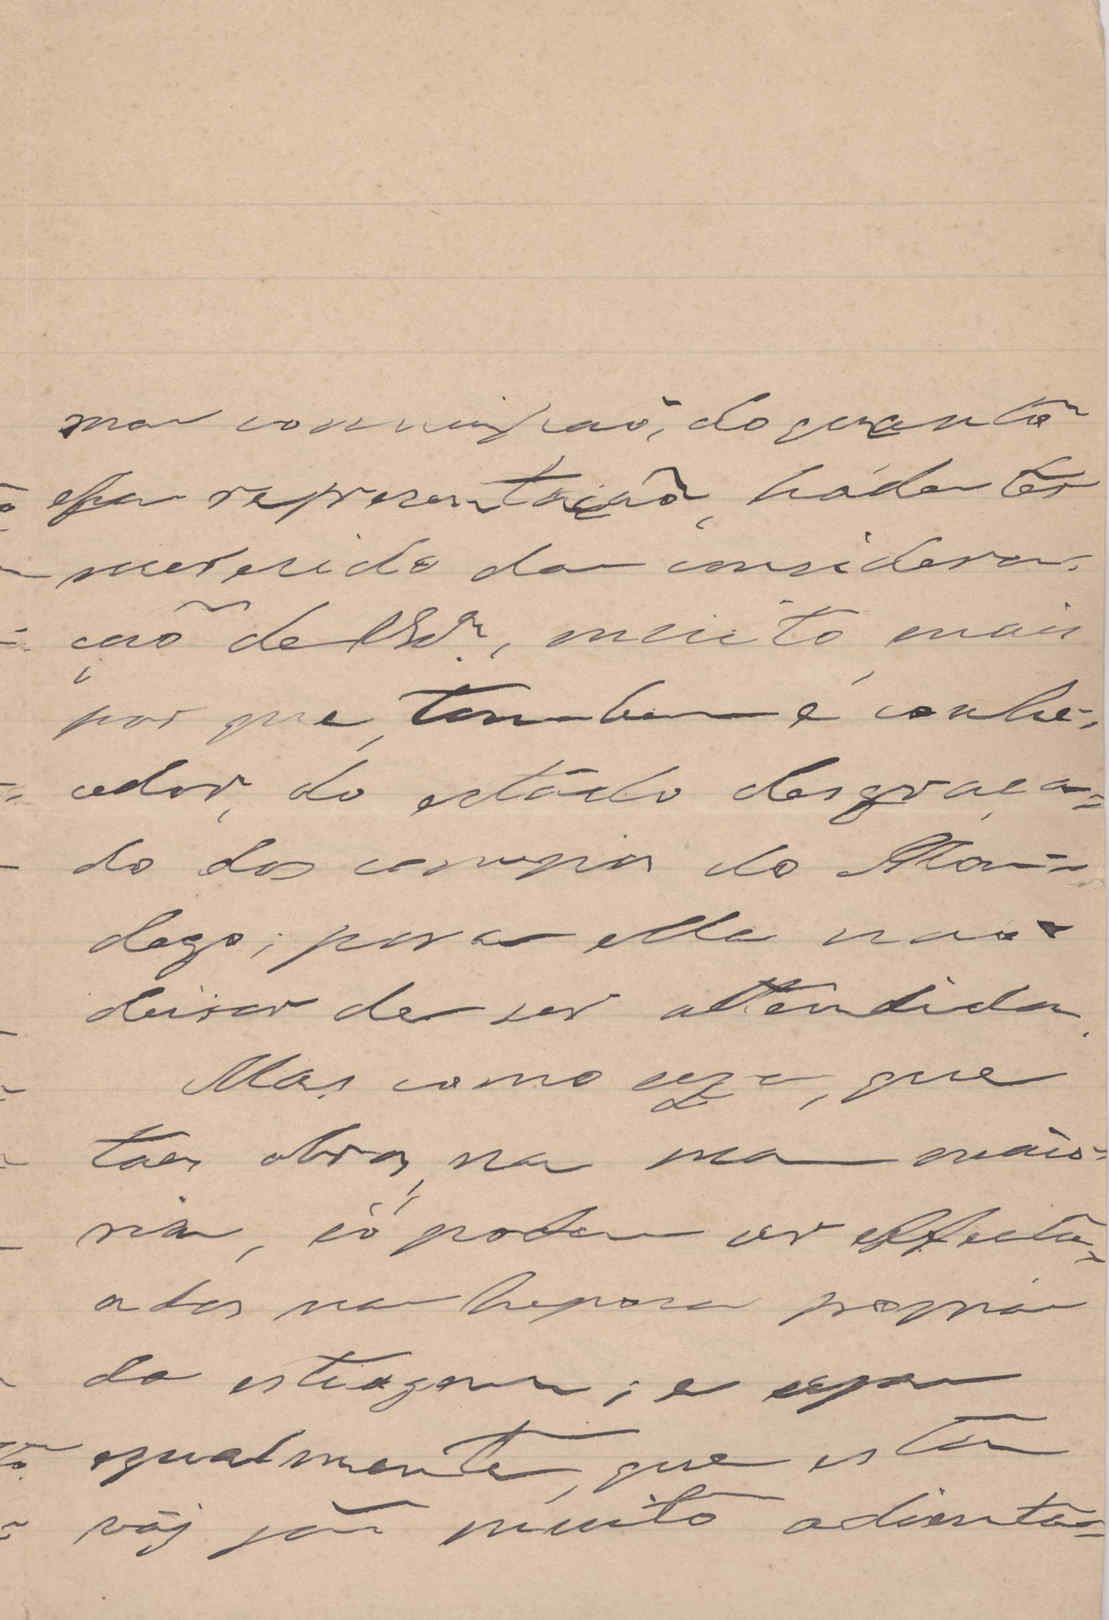 ma commissão, do quanto
essa representação, háde ter
merecido da considera-
ção de V. Ex.ª, muito mais
por que, tambem é conhe-
cedor, do estádo desgraça-
do dos campos do Mon-
dego; para ella não
deixar de ser attendida.
Mas como seja, que
taes obras, na sua maio-
ria, só podem ser effectu-
adas na hepoca propria
da estiagem; e seja
egualmente, que esta
vai já muito adianta-